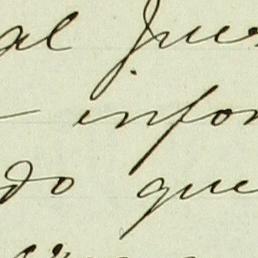 al Jues
infor
do que